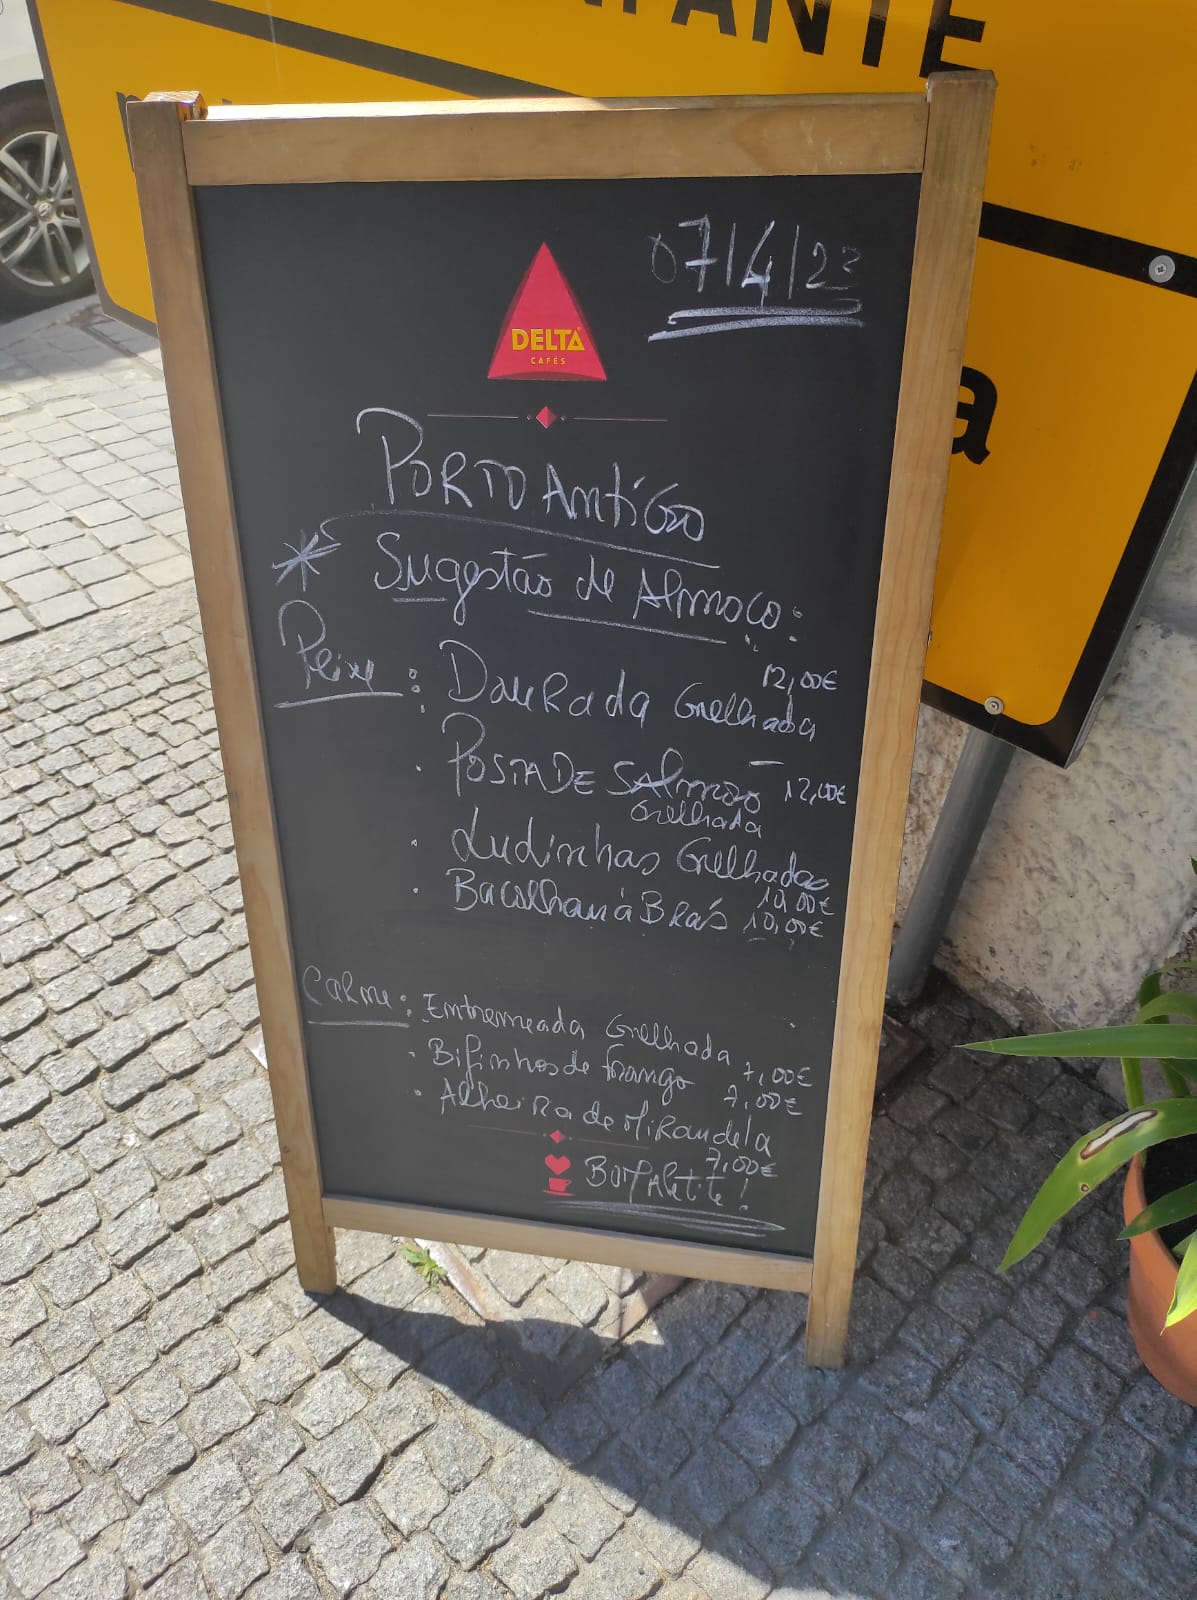 FANTE
07/4/23
DELTA
CAFÉS
PORTO Antigo
* Sugestão de Almoço:
Peixe: Dourada Grelhada 12,00€
. Posta de Salmão 12,00€
Grelhada
. Lulinhas Grelhadas 10,00€
. Bacalhau à Brás 10,00€
Carne: Entremeada Grelhada 7,00€
. Bifinhos de frango 7,00€
. Alheira de Mirandela 7,00€
Bom Apetite!
a